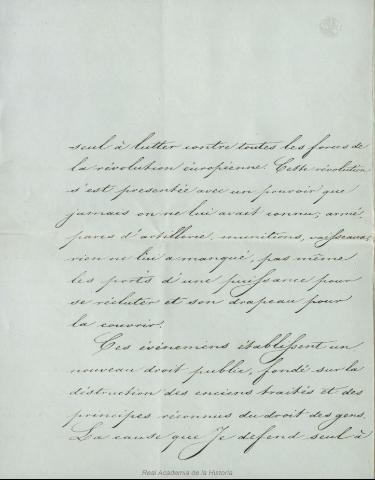 seul à lutter contre toutes les forces de
la révolution européenne. Cette révolution
s'est presentée avec un pouvoir que
jamais on ne lui avait connu, armé,
parcs d'artillerie, munitions, vaisseaux,
rien ne lui a manqué, pas même
les ports d'une puissance pour
se récluter et son drapeau pour
la couvrir.
Ces évènemens établissent un
nouveau droit public, fondé sur la
déstruction des enciens traités et des
principes réconnus du droit des gens.
La cause que Je defend seul à
Real Academia de la Historia